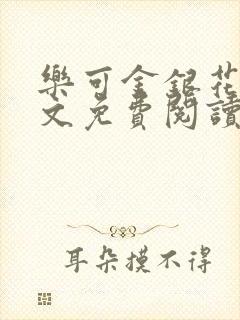 樂可金銀花
文免費閱讀
耳朵摸不得